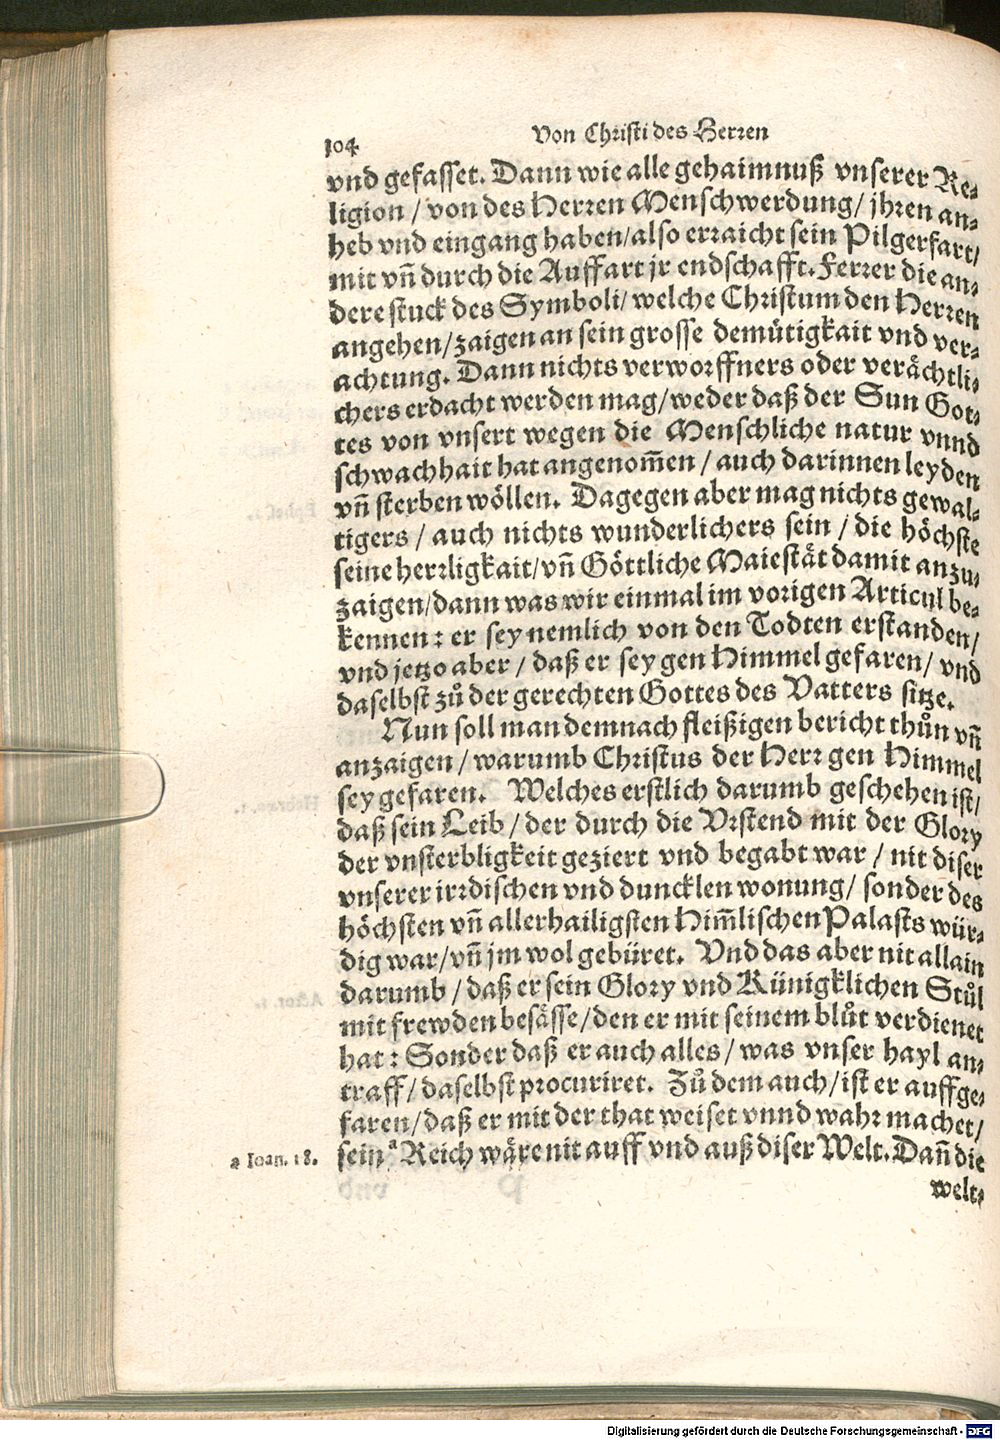 104 Von Christi des Herren
vnd gefasset. Dann wie alle gehaimnuß vnserer Re-
ligion / von des Herren Menschwerdung / jhren an-
heb vnd eingang haben / also erraicht sein Pilgerfart /
mit vñ durch die Auffart jr endschafft. Ferrer die an-
dere stuck des Symboli / welche Christum den Herren
angehen / zaigen an sein grosse demütigkait vnd ver-
achtung. Dann nichts verworffners oder verächtli-
chers erdacht werden mag / weder daß der Sun Got-
tes von vnsert wegen die Menschliche natur vnnd
schwachhait hat angenom̃en / auch darinnen leyden
vñ sterben wöllen. Dagegen aber mag nichts gewal-
tigers / auch nichts wunderlichers sein / die höchste
seine herrligkait / vñ Göttliche Maiestät damit anzu-
zaigen / dann was wir einmal im vorigen Articul be-
kennen : er sey nemlich von den Todten erstanden /
vnd jetzo aber / daß er sey gen Himmel gefaren / vnd
daselbst zů der gerechten Gottes des Vatters sitze.
Nun soll man demnach fleißigen bericht thůn vñ
anzaigen / warumb Christus der Herr gen Himmel
sey gefaren. Welches erstlich darumb geschehen ist /
daß sein Leib / der durch die Vrstend mit der Glory
der vnsterbligkeit geziert vnd begabt war / nit diser
vnserer irrdischen vnd duncklen wonung / sonder des
höchsten vñ allerhailigsten Him̃lischen Palasts wür-
dig war / vñ jm wol gebüret. Vnd das aber nit allain
darumb / daß er sein Glory vnd Künigklichen Stůl
mit frewden besässe / den er mit seinem blůt verdienet
hat : Sonder daß er auch alles / was vnser hayl an-
traff / daselbst procuriret. Zů dem auch / ist er auffge-
faren / daß er mit der that weiset vnnd wahr machet /
a Ioan. 18. sein ᵃ Reich wäre nit auff vnd auß diser Welt. Dañ die
welt-
Digitalisierung gefördert durch die Deutsche Forschungsgemeinschaft - DFG